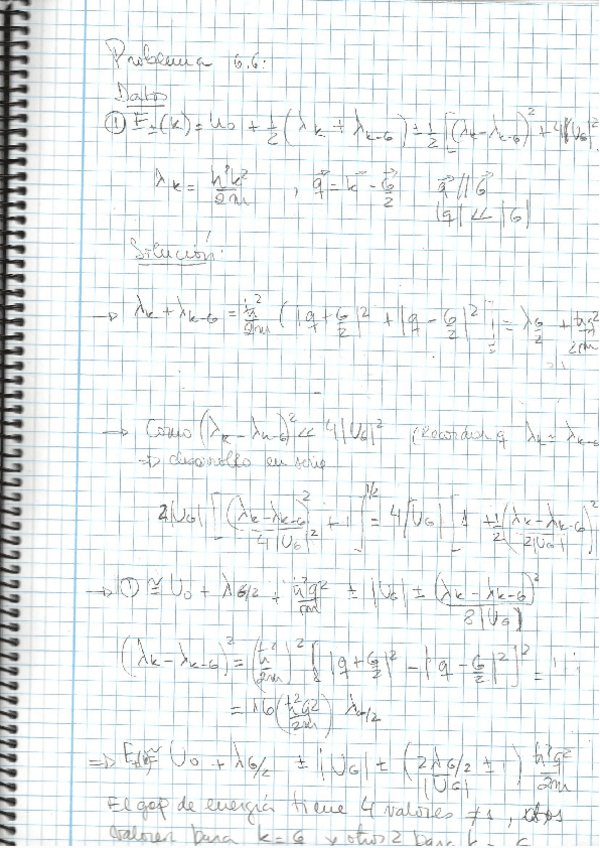 Problema 6.6:
Datos
① E±(k) = U₀ + ½(λk + λk-G) ± ½[(λk-λk-G)² + 4|UG|²
λk = ħ²k²/2m , q⃗ = k⃗ - G⃗/2 q⃗ // G⃗
|q| << |G|
Solución:
→ λk + λk-G = ħ²/2m (|q+G/2|² + |q-G/2|²) = λG/2 + ħq²/2m
→ Como (λk - λk-G)² << 4|UG|² (recordar q λk ≈ λk-G
→ desarrollo en serie
2|UG| [(λk-λk-G)²/4|UG|² + 1]^1/2 = 4|UG| [1 + 1/2 (λk-λk-G/2|UG|)²
→ ① ≅ U₀ + λG/2 + ħ²q²/2m ± |UG| ± (λk - λk-G)²/8|UG|
(λk-λk-G)² = (ħ²/2m)² [|q+G/2|² - |q-G/2|²]² =
= 16(ħ²q²/2m) λG/2
⇒ ≅ U₀ + λG/2 ± |UG| ± (2λG/2/|UG| ± 1) ħ²q²/2m
El gap de energía tiene 4 valores ≠s,
valores para k=G y otros 2 para